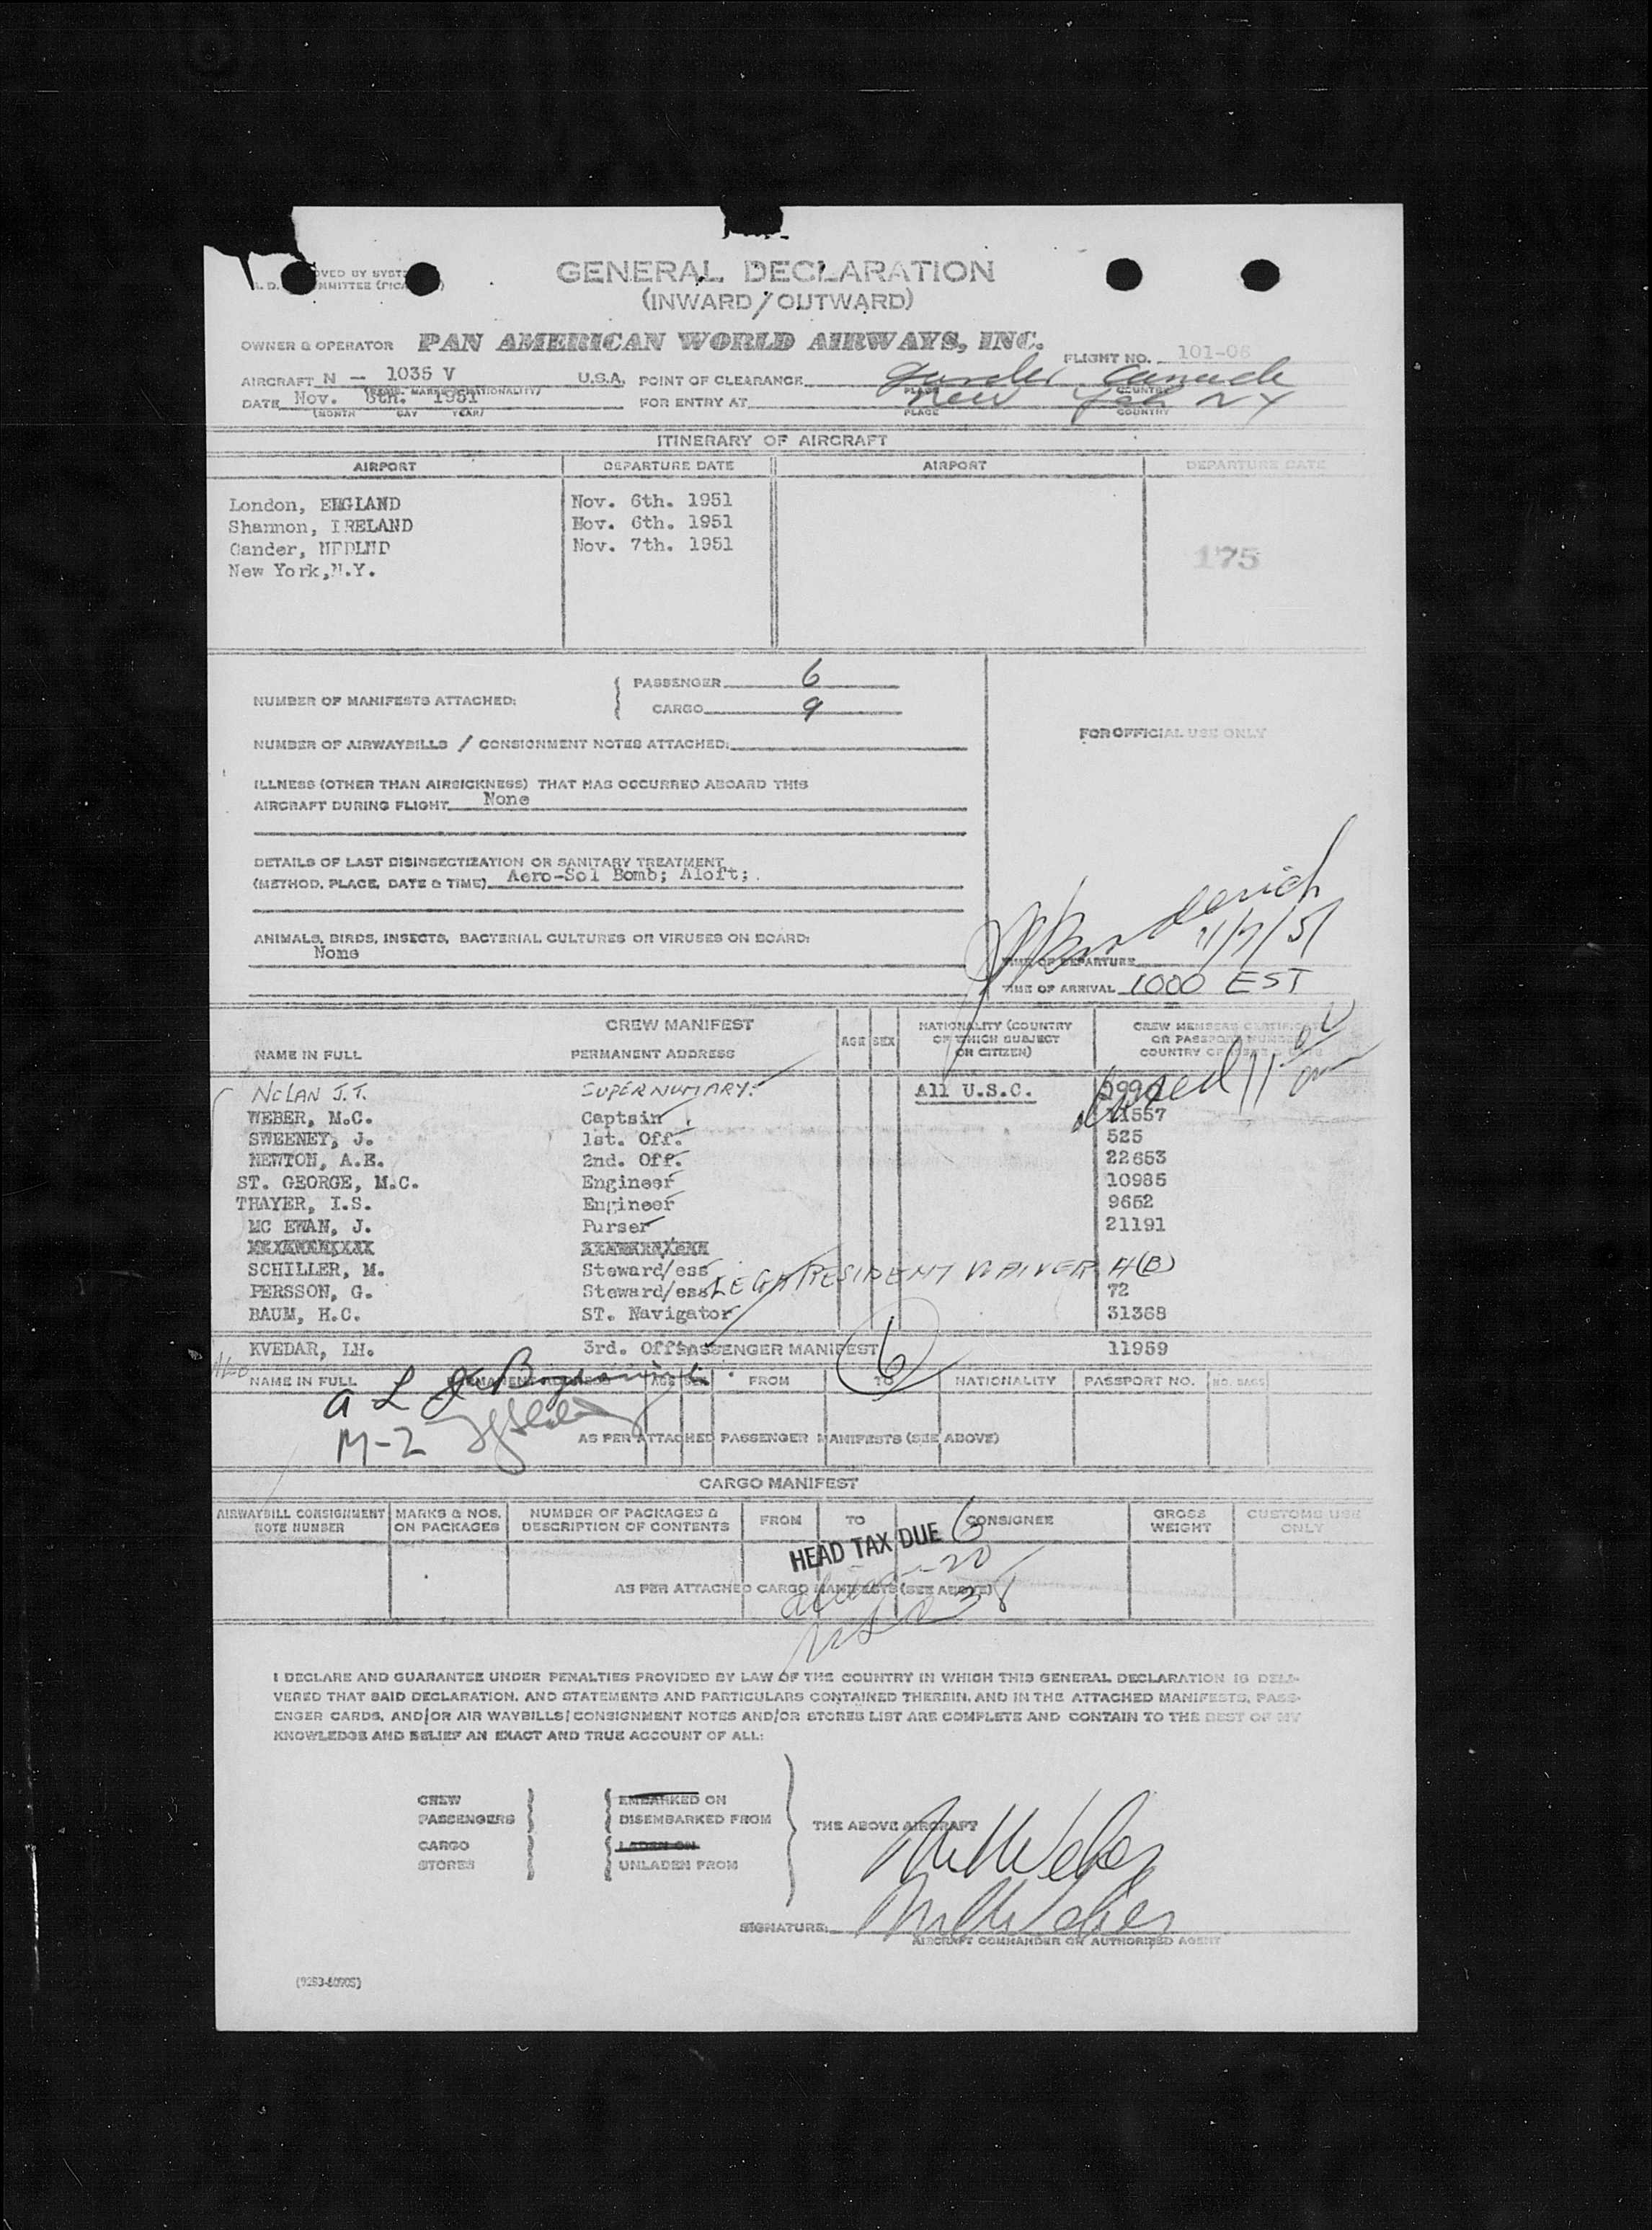 GENERAL DECLARATION
(INWARD/OUTWARD)
OWNER & OPERATOR PAN AMERICAN WORLD AIRWAYS, INC.
FLIGHT NO. 101-06
AIRCRAFT N - 1035 V U.S.A. POINT OF CLEARANCE Gander Canada
DATE Nov. 6th. 1951 FOR ENTRY AT New York NY
(MONTH DAY YEAR) PLACE COUNTRY
ITINERARY OF AIRCRAFT
AIRPORT DEPARTURE DATE AIRPORT DEPARTURE DATE
London, ENGLAND Nov. 6th. 1951
Shannon, IRELAND Nov. 6th. 1951
Gander, NFDLND Nov. 7th. 1951
New York,N.Y.
175
NUMBER OF MANIFESTS ATTACHED: PASSENGER 6
CARGO 9
FOR OFFICIAL USE ONLY
NUMBER OF AIRWAYBILLS / CONSIGNMENT NOTES ATTACHED:
ILLNESS (OTHER THAN AIRSICKNESS) THAT HAS OCCURRED ABOARD THIS
AIRCRAFT DURING FLIGHT None
DETAILS OF LAST DISINSECTIZATION OR SANITARY TREATMENT
(METHOD, PLACE, DATE & TIME) Aero-Sol Bomb; Aloft;
ANIMALS, BIRDS, INSECTS, BACTERIAL CULTURES OR VIRUSES ON BOARD:
None
11/7/51
TIME OF DEPARTURE
TIME OF ARRIVAL 1000 EST
CREW MANIFEST
NAME IN FULL PERMANENT ADDRESS AGE SEX NATIONALITY (COUNTRY OF WHICH SUBJECT OR CITIZEN) CREW MEMBERS OR PASSPORT COUNTRY OF
NOLAN J.T. SUPERNUMARY. All U.S.C.
WEBER, M.C. Captain 11557
SWEENEY, J. 1st. Off. 525
NEWTON, A.E. 2nd. Off. 22653
ST. GEORGE, M.C. Engineer 10985
THAYER, I.S. Engineer 9652
MC EWAN, J. Purser 21191
SCHILLER, M. Steward/ess LEGAL RESIDENT WAIVER 4(B)
PERSSON, G. Steward/ess 72
BAUM, H.C. ST. Navigator 31368
KVEDAR, LH. 3rd. Off. PASSENGER MANIFEST 6 11959
NAME IN FULL PERMANENT ADDRESS AGE SEX FROM TO NATIONALITY PASSPORT NO. NO. BAGS
M-2
AS PER ATTACHED PASSENGER MANIFESTS (SEE ABOVE)
CARGO MANIFEST
AIRWAYBILL CONSIGNMENT NOTE NUMBER MARKS & NOS. ON PACKAGES NUMBER OF PACKAGES & DESCRIPTION OF CONTENTS FROM TO CONSIGNEE GROSS WEIGHT CUSTOMS USE ONLY
HEAD TAX DUE 6
AS PER ATTACHED CARGO MANIFESTS (SEE ABOVE)
I DECLARE AND GUARANTEE UNDER PENALTIES PROVIDED BY LAW OF THE COUNTRY IN WHICH THIS GENERAL DECLARATION IS DELI-
VERED THAT SAID DECLARATION, AND STATEMENTS AND PARTICULARS CONTAINED THEREIN, AND IN THE ATTACHED MANIFESTS, PASS-
ENGER CARDS, AND/OR AIR WAYBILLS/CONSIGNMENT NOTES AND/OR STORES LIST ARE COMPLETE AND CONTAIN TO THE BEST OF MY
KNOWLEDGE AND BELIEF AN EXACT AND TRUE ACCOUNT OF ALL:
CREW EMBARKED ON
PASSENGERS DISEMBARKED FROM THE ABOVE AIRCRAFT
CARGO LADEN ON
STORES UNLADEN FROM
SIGNATURE: M C Weber
AIRCRAFT COMMANDER OR AUTHORIZED AGENT